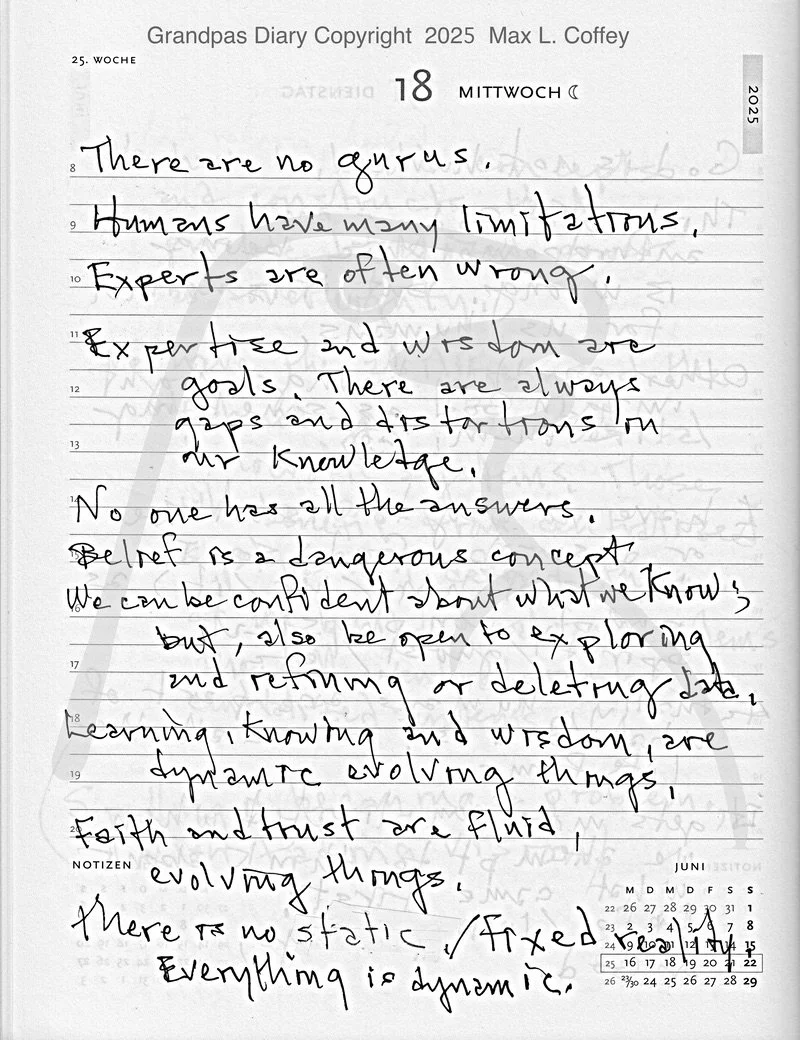 Grandpas Diary Copyright 2025 Max L. Coffey
25. WOCHE
18 MITTWOCH ☾
2025
DIENSTAG
8 There are no gurus.
9 Humans have many limitations.
10 Experts are often wrong.
11 Expertise and wisdom are
12 goals. There are always
gaps and distortions in
13 our knowledge.
14 No one has all the answers.
15 Belief is a dangerous concept
16 We can be confident about what we know;
but, also be open to exploring
17 and refining or deleting data.
18 Learning, knowing and wisdom, are
19 dynamic evolving things.
20 Faith and trust are fluid,
NOTIZEN
evolving things.
There is no static / fixed reality.
Everything is dynamic.
JUNI
M D M D F S S
22 26 27 28 29 30 31 1
23 2 3 4 5 6 7 8
24 9 10 11 12 13 14 15
25 16 17 18 19 20 21 22
26 23/30 24 25 26 27 28 29